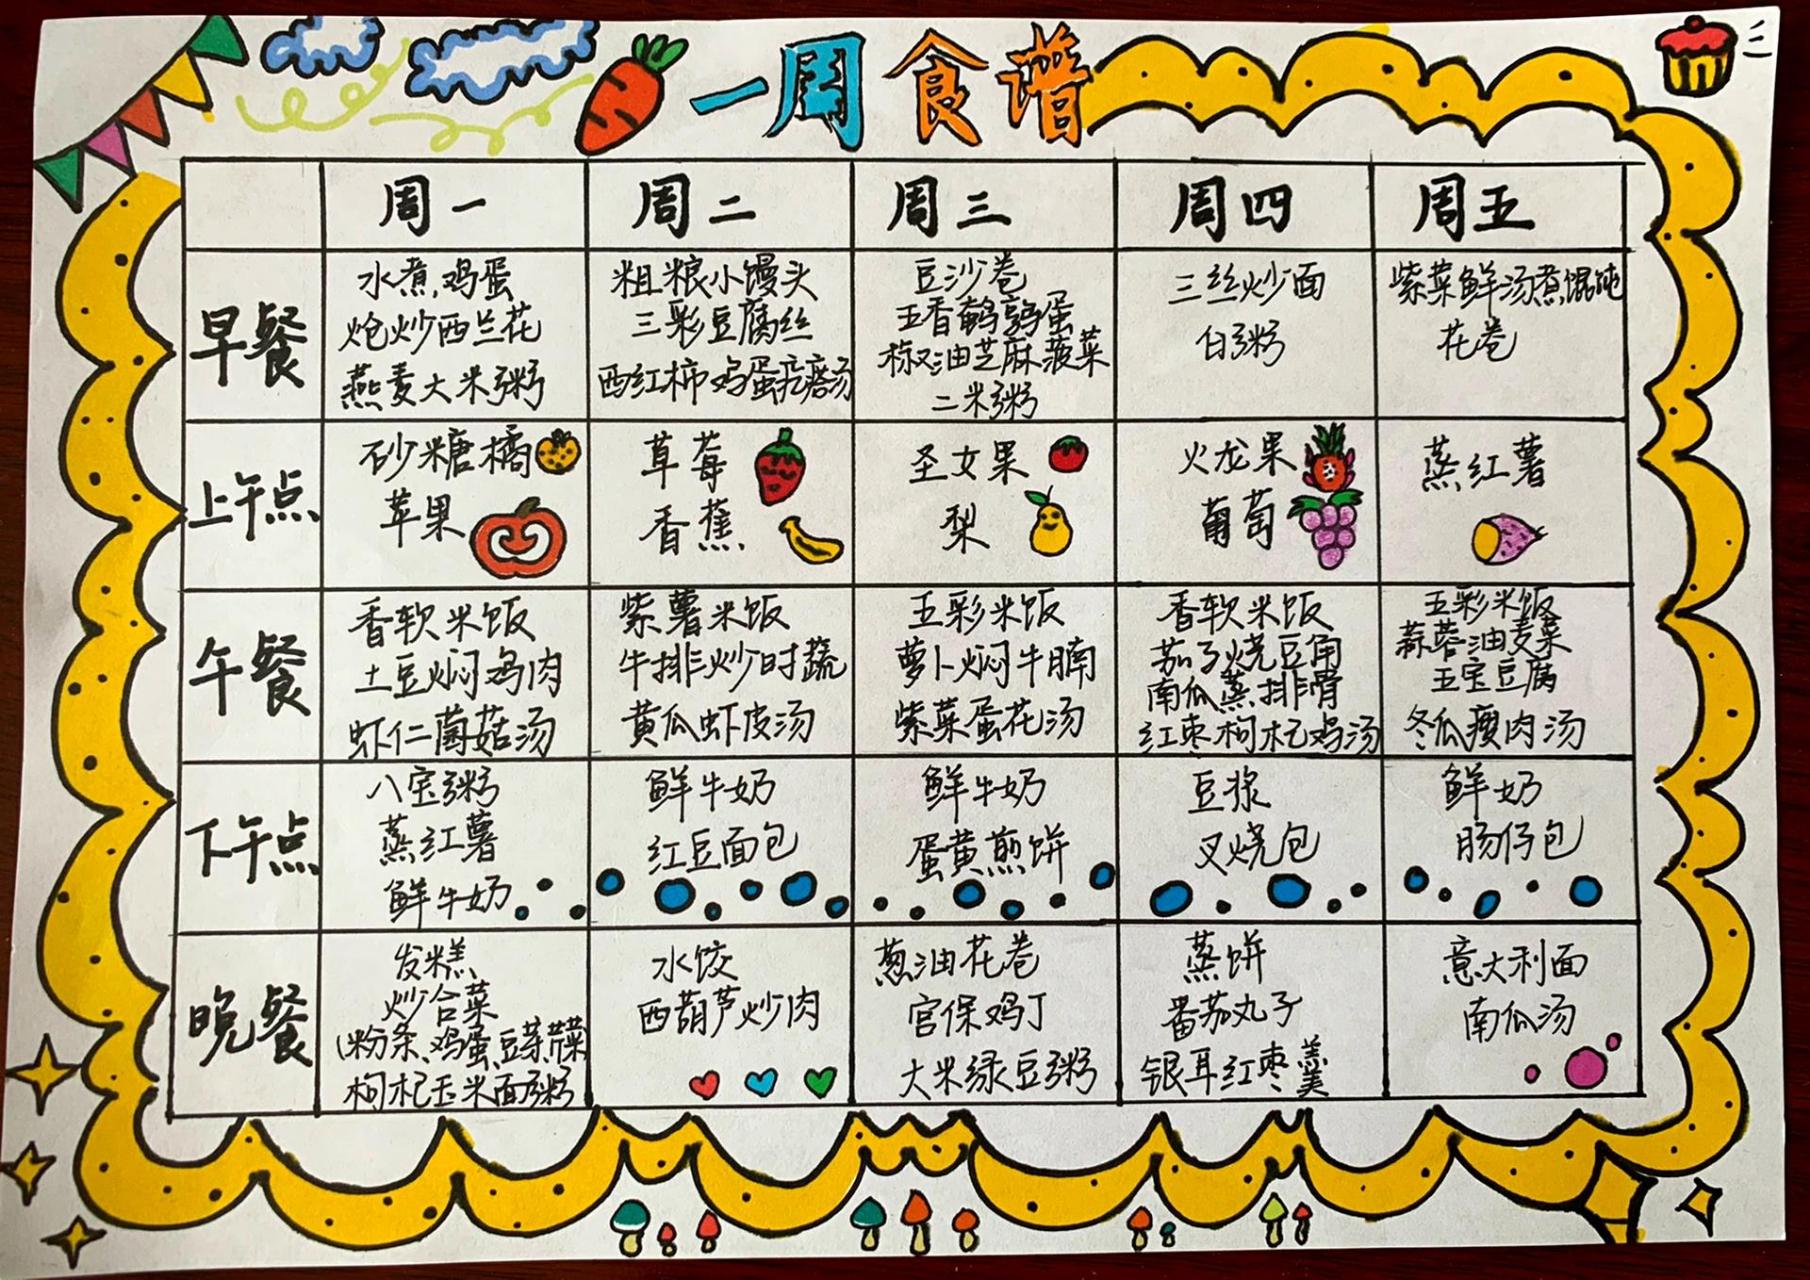 一周食谱
周一
周二
周三
周四
周五
早餐
水煮鸡蛋
炝炒西兰花
燕麦大米粥
粗粮小馒头
三彩豆腐丝
西红柿鸡蛋疙瘩汤
豆沙卷
五香鹌鹑蛋
椒油芝麻菠菜
二米粥
三丝炒面
白粥
紫菜鲜汤煮馄饨
花卷
上午点
砂糖橘
苹果
草莓
香蕉
圣女果
梨
火龙果
葡萄
蒸红薯
午餐
香软米饭
土豆焖鸡肉
虾仁菌菇汤
紫薯米饭
牛排炒时蔬
黄瓜虾皮汤
五彩米饭
萝卜焖牛腩
紫菜蛋花汤
香软米饭
茄子烧豆角
南瓜蒸排骨
红枣枸杞鸡汤
五彩米饭
蒜蓉油麦菜
五宝豆腐
冬瓜瘦肉汤
下午点
八宝粥
蒸红薯
鲜牛奶
鲜牛奶
红豆面包
鲜牛奶
蛋黄煎饼
豆浆
叉烧包
鲜奶
肠仔包
晚餐
发糕
炒合菜
(粉条、鸡蛋、豆芽、菜
枸杞玉米面粥
水饺
西葫芦炒肉
葱油花卷
宫保鸡丁
大米绿豆粥
蒸饼
番茄丸子
银耳红枣羹
意大利面
南瓜汤